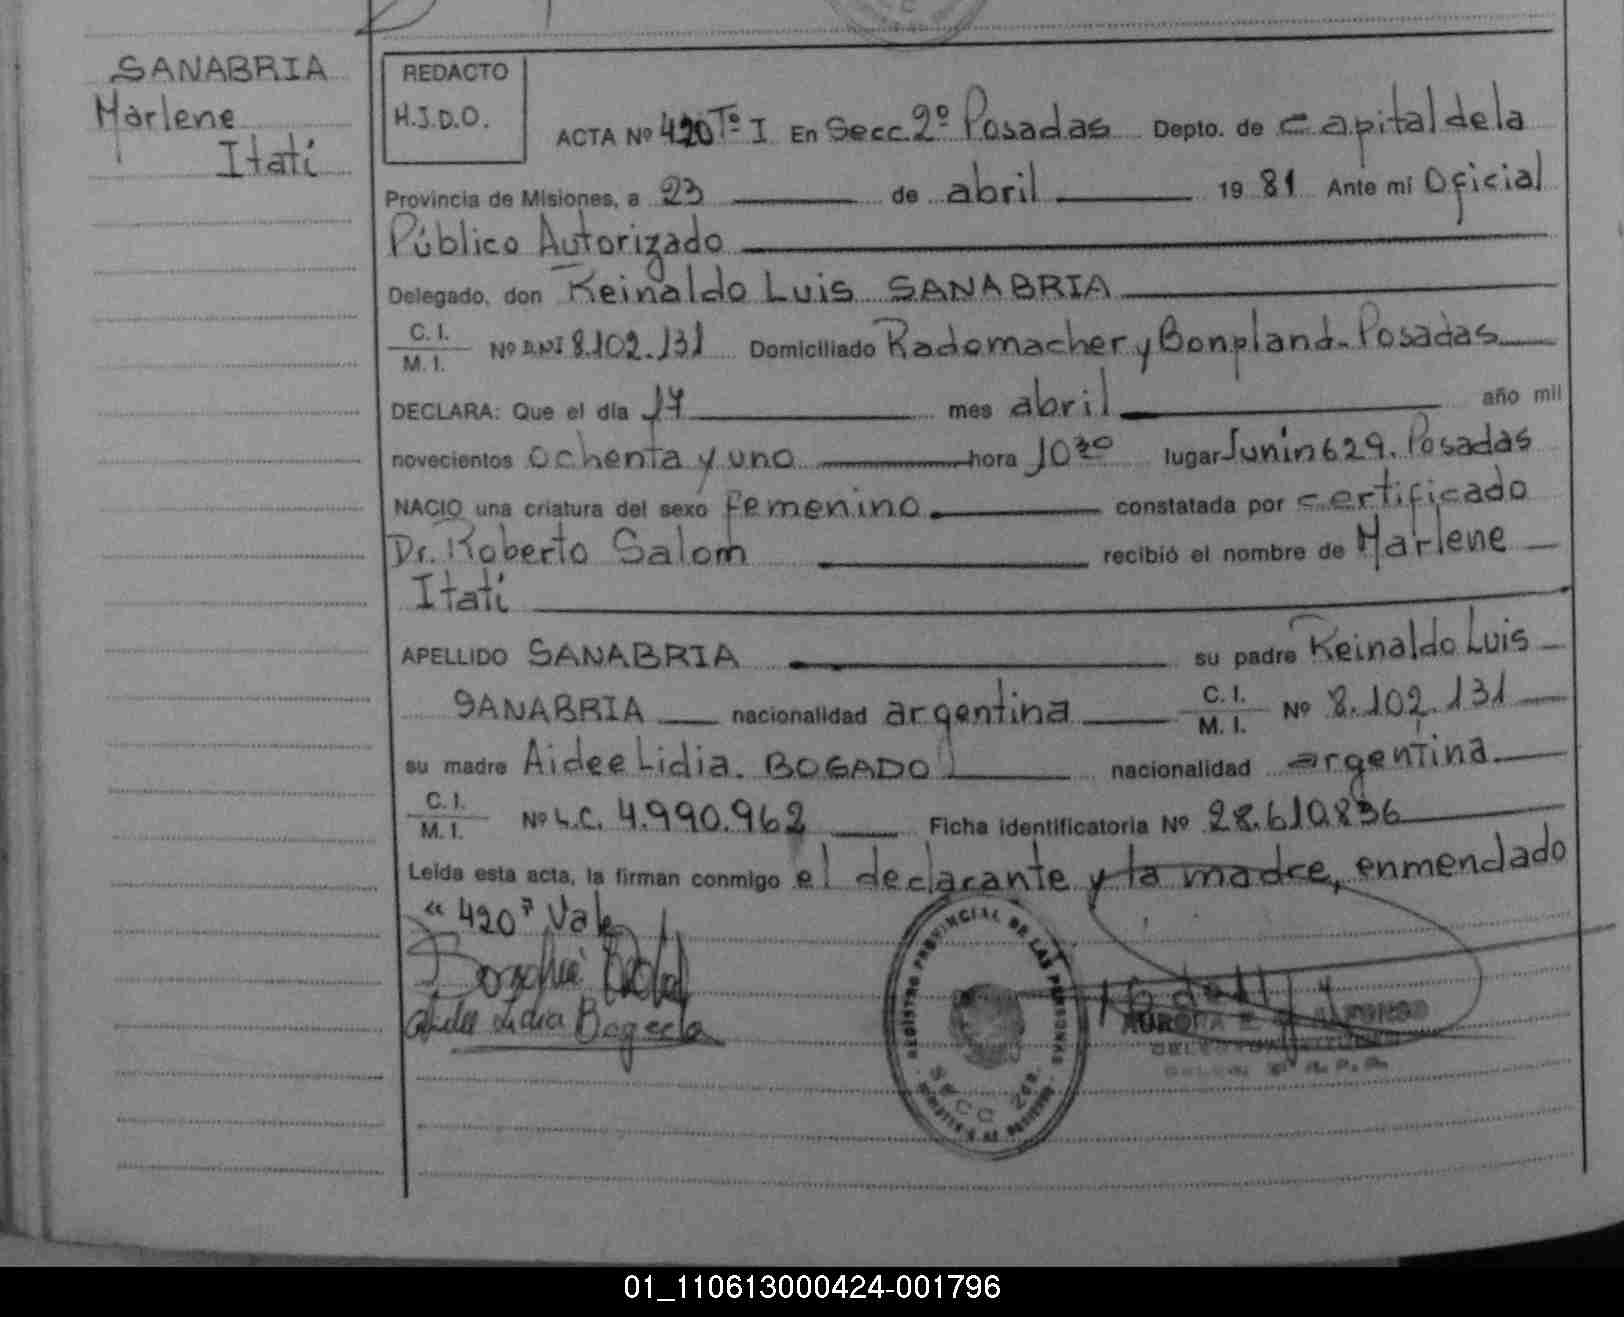 SANABRIA
Marlene
Itatí
REDACTO
H.J.D.O.
ACTA Nº 420 Tº I En Secc. 2º Posadas Depto. de Capital de la
Provincia de Misiones, a 23 de abril 1981 Ante mí Oficial
Público Autorizado
Delegado, don Reinaldo Luis SANABRIA
C. I.
M. I. Nº D.N.I 8.102.131 Domiciliado Rademacher y Bonpland - Posadas
DECLARA: Que el día 17 mes abril año mil
novecientos ochenta y uno hora 10 30 lugar Junin 629. Posadas
NACIO una criatura del sexo femenino constatada por certificado
Dr. Roberto Salom recibió el nombre de Marlene
Itatí
APELLIDO SANABRIA su padre Reinaldo Luis
SANABRIA nacionalidad argentina C. I. M. I. Nº 8.102.131
su madre Aidee Lidia. BOGADO nacionalidad argentina
C. I.
M. I. Nº L.C. 4.990.962 Ficha identificatoria Nº 28.610.836
Leída esta acta, la firman conmigo el declarante y la madre, enmendado
"420" Vale
Lidia Bogado
REGISTRO PROVINCIAL DE LAS PERSONAS
SECC 2da.
AURORA
01_110613000424-001796